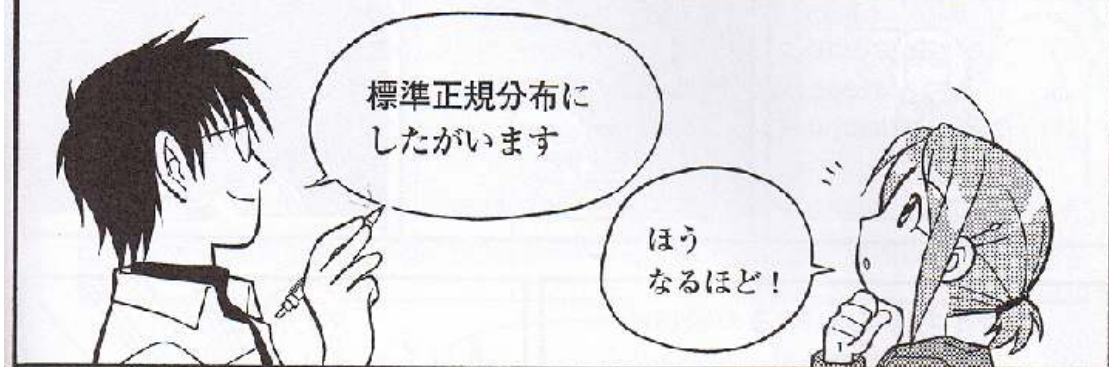 標準正規分布に
したがいます
ほう
なるほど！